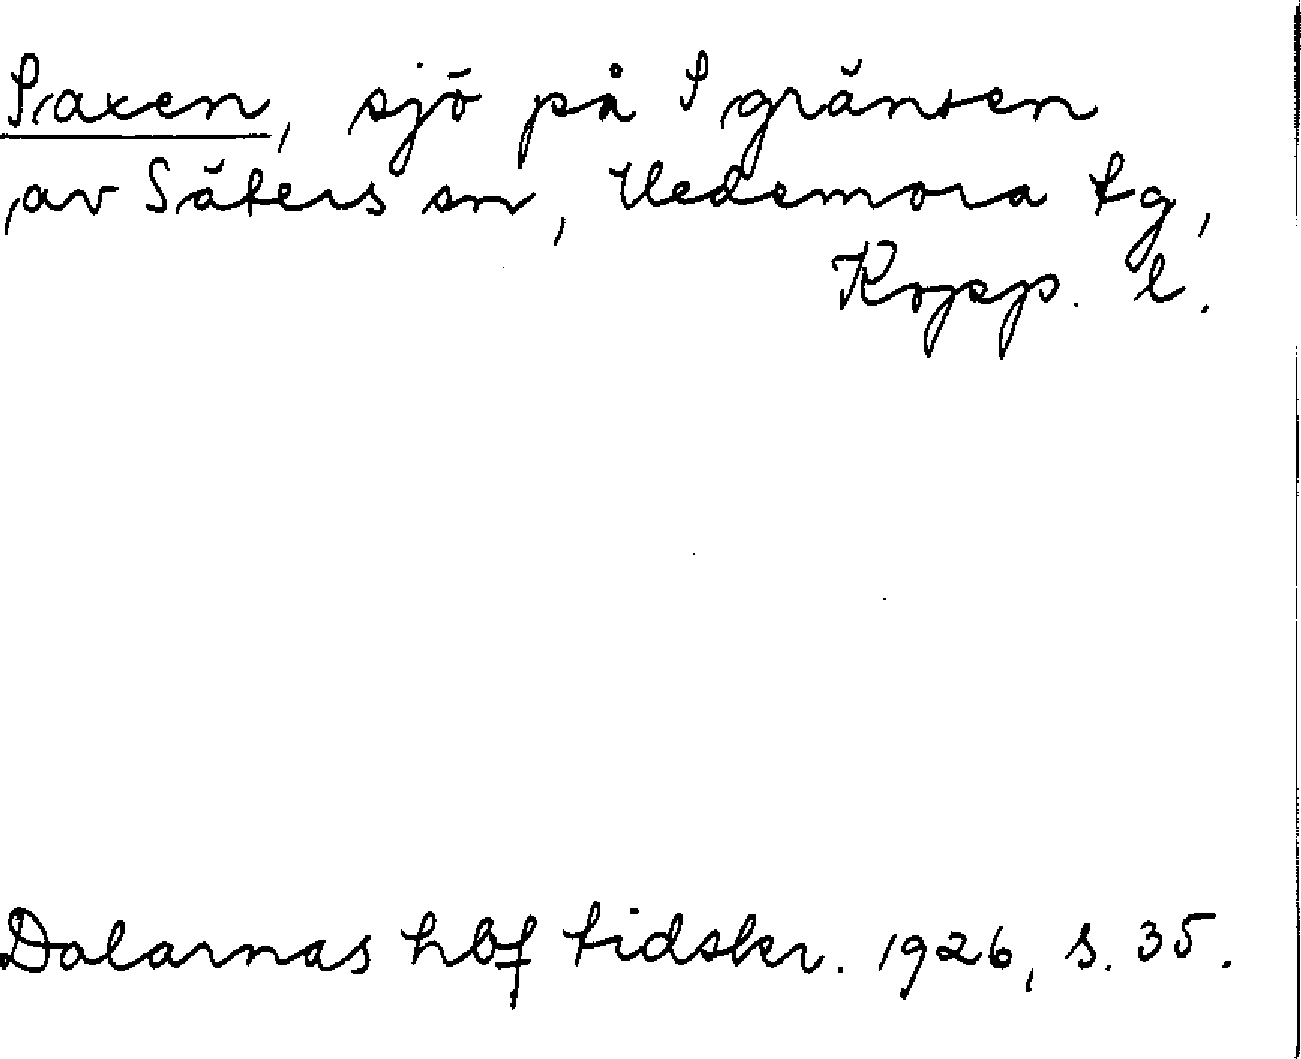 Saxen, sjö på S gränsen
av Säters sn, Hedemora tg,
Kopp. l.
Dalarnas hbf tidskr. 1926, s. 35.